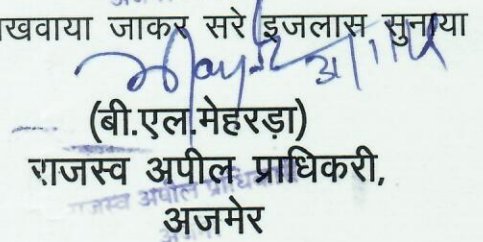 खवाया जाकर सरे इजलास सुनाया
(बी.एल.मेहरड़ा)
राजस्व अपील प्राधिकरी,
राजस्व अपील
अजमेर